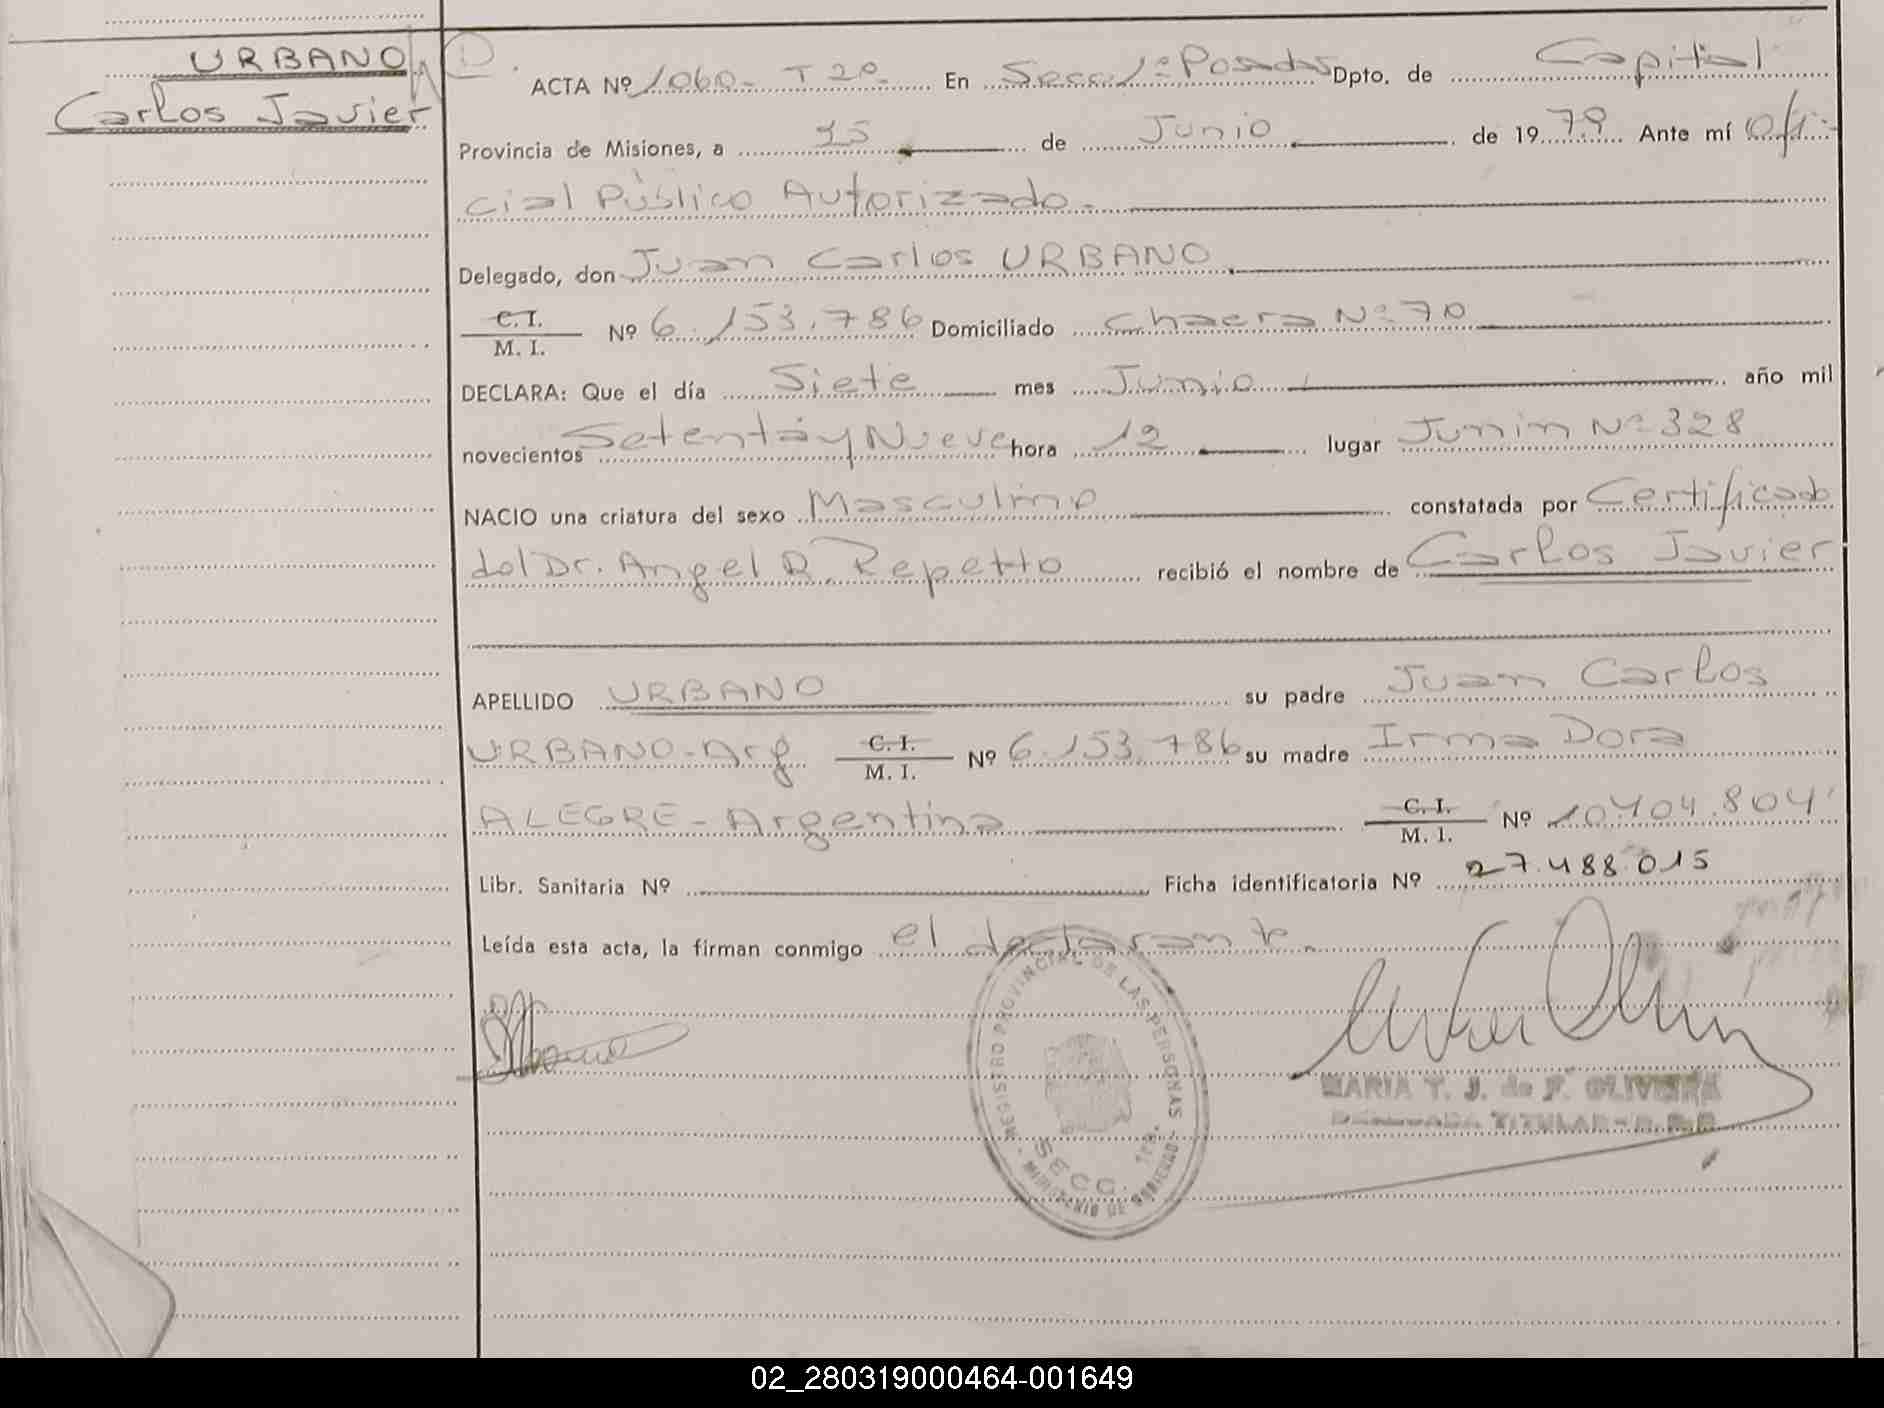 URBANO
Carlos Javier
ACTA Nº 1060- T 2º- En Secc. 1ª Posadas Dpto. de Capital
Provincia de Misiones, a 15 de Junio de 1979 Ante mí Ofi-
cial Público Autorizado-
Delegado, don Juan Carlos URBANO
C. I.
M. I. Nº 6.153.786 Domiciliado Chacra Nº 70
DECLARA: Que el día Siete mes Junio año mil
novecientos Setenta y Nueve hora 12 lugar Junin Nº 328
NACIO una criatura del sexo Masculino constatada por Certificado
del Dr. Angel R. Repetto recibió el nombre de Carlos Javier
APELLIDO URBANO su padre Juan Carlos
URBANO-Arg C. I. M. I. Nº 6.153.786 su madre Irma Dora
ALEGRE-Argentina C. I. M. I. Nº 10.404.804
Libr. Sanitaria Nº Ficha identificatoria Nº 27.488.015
Leída esta acta, la firman conmigo el declarante.
REGISTRO PROVINCIAL DE LAS PERSONAS
MINISTERIO DE GOBIERNO
SECC. 1ra.
MARIA T. J. de F. OLIVEIRA
DELEGADA TITULAR-R.P.P.
02_280319000464-001649